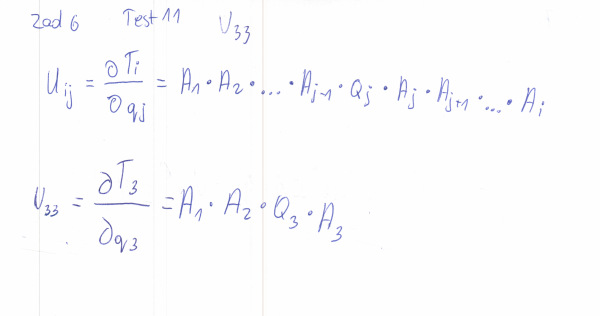 Zad 6 Test 11 U₃₃
Uᵢⱼ = ∂Tᵢ/∂qⱼ = A₁ · A₂ · ... · Aⱼ₋₁ · Qⱼ · Aⱼ · Aⱼ₊₁ · ... · Aᵢ
U₃₃ = ∂T₃/∂q₃ = A₁ · A₂ · Q₃ · A₃